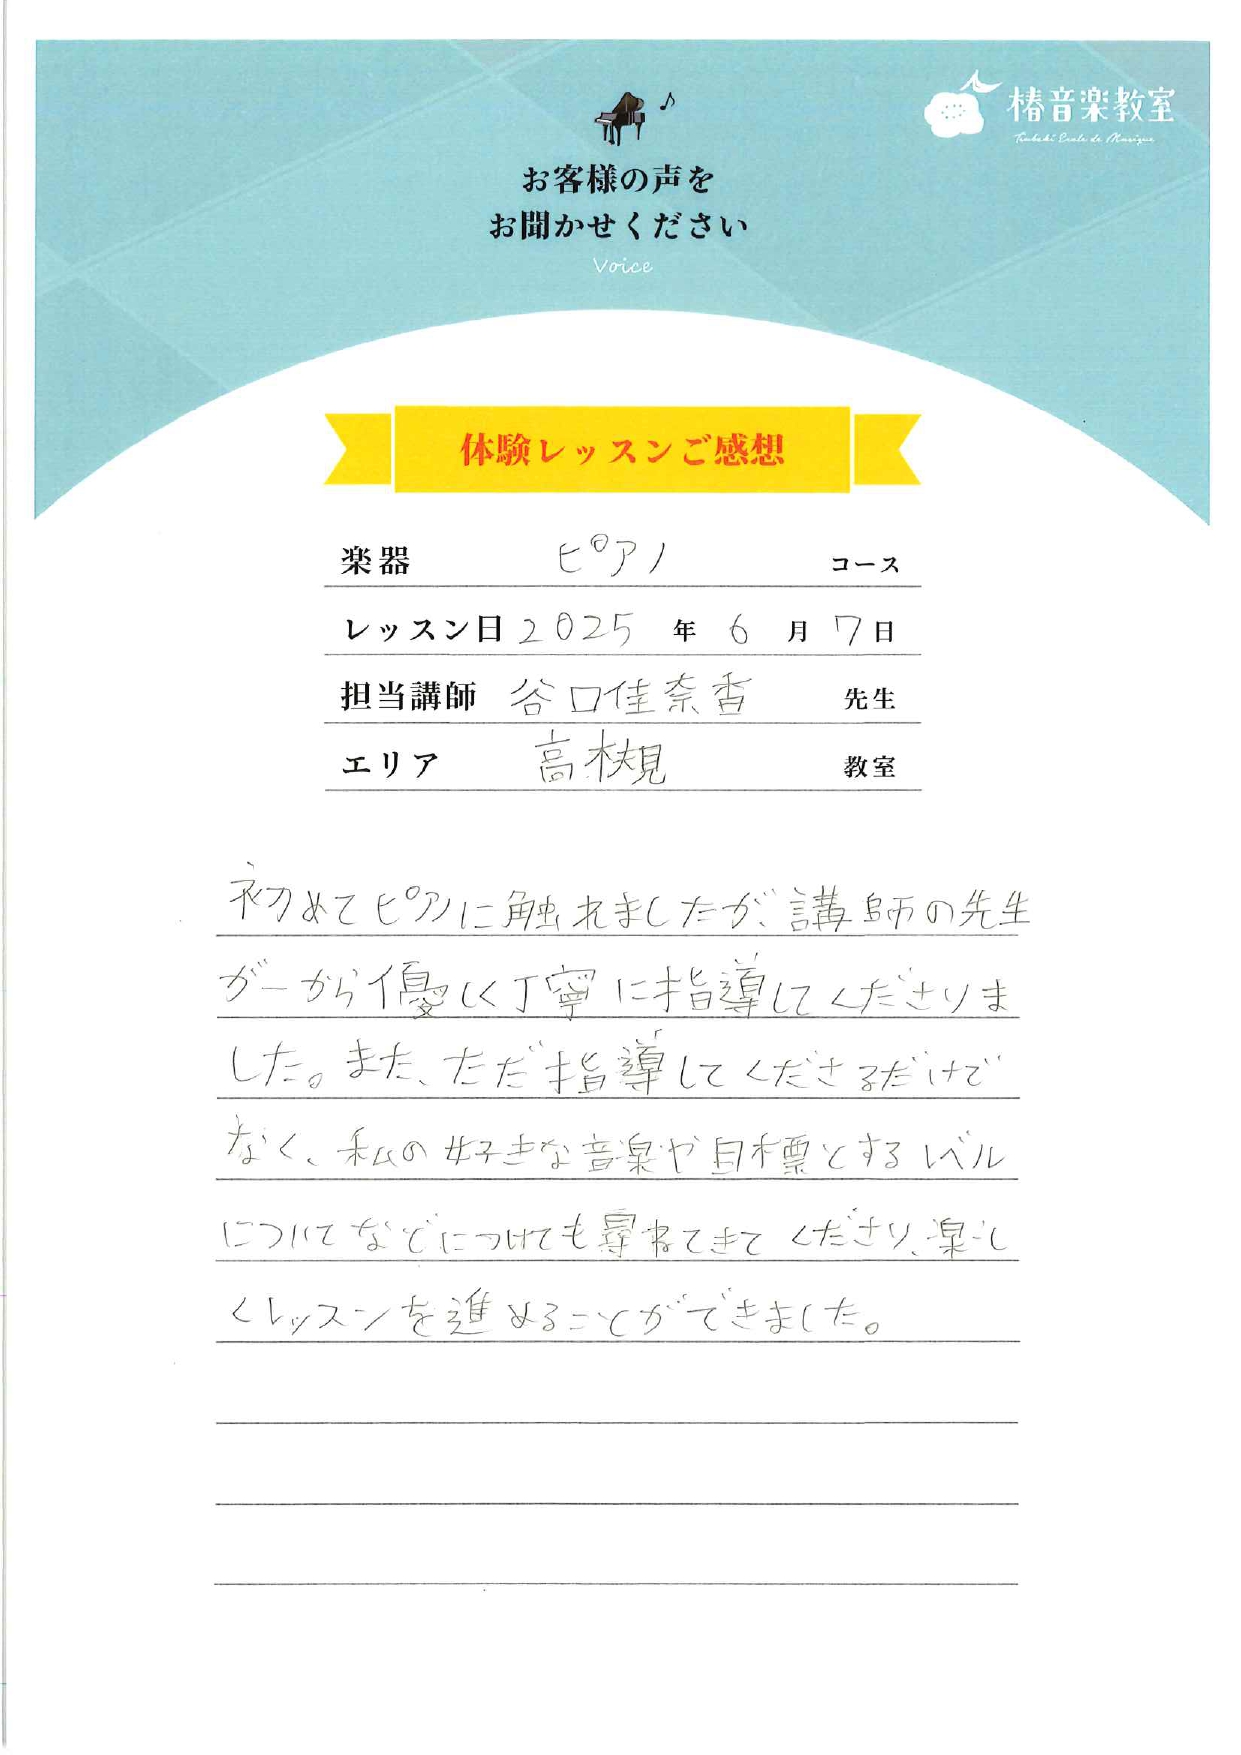 椿音楽教室
Tsubaki Ecole de Musique
お客様の声を
お聞かせください
Voice
体験レッスンご感想
楽器 ピアノ コース
レッスン日 2025 年 6 月 7 日
担当講師 谷口佳奈香 先生
エリア 高槻 教室
初めてピアノに触れましたが、講師の先生
が一から優しく丁寧に指導してくださりま
した。また、ただ指導してくださるだけで
なく、私の好きな音楽や目標とするレベル
についてなどにつけても尋ねてきてくださり、楽し
くレッスンを進めることができました。